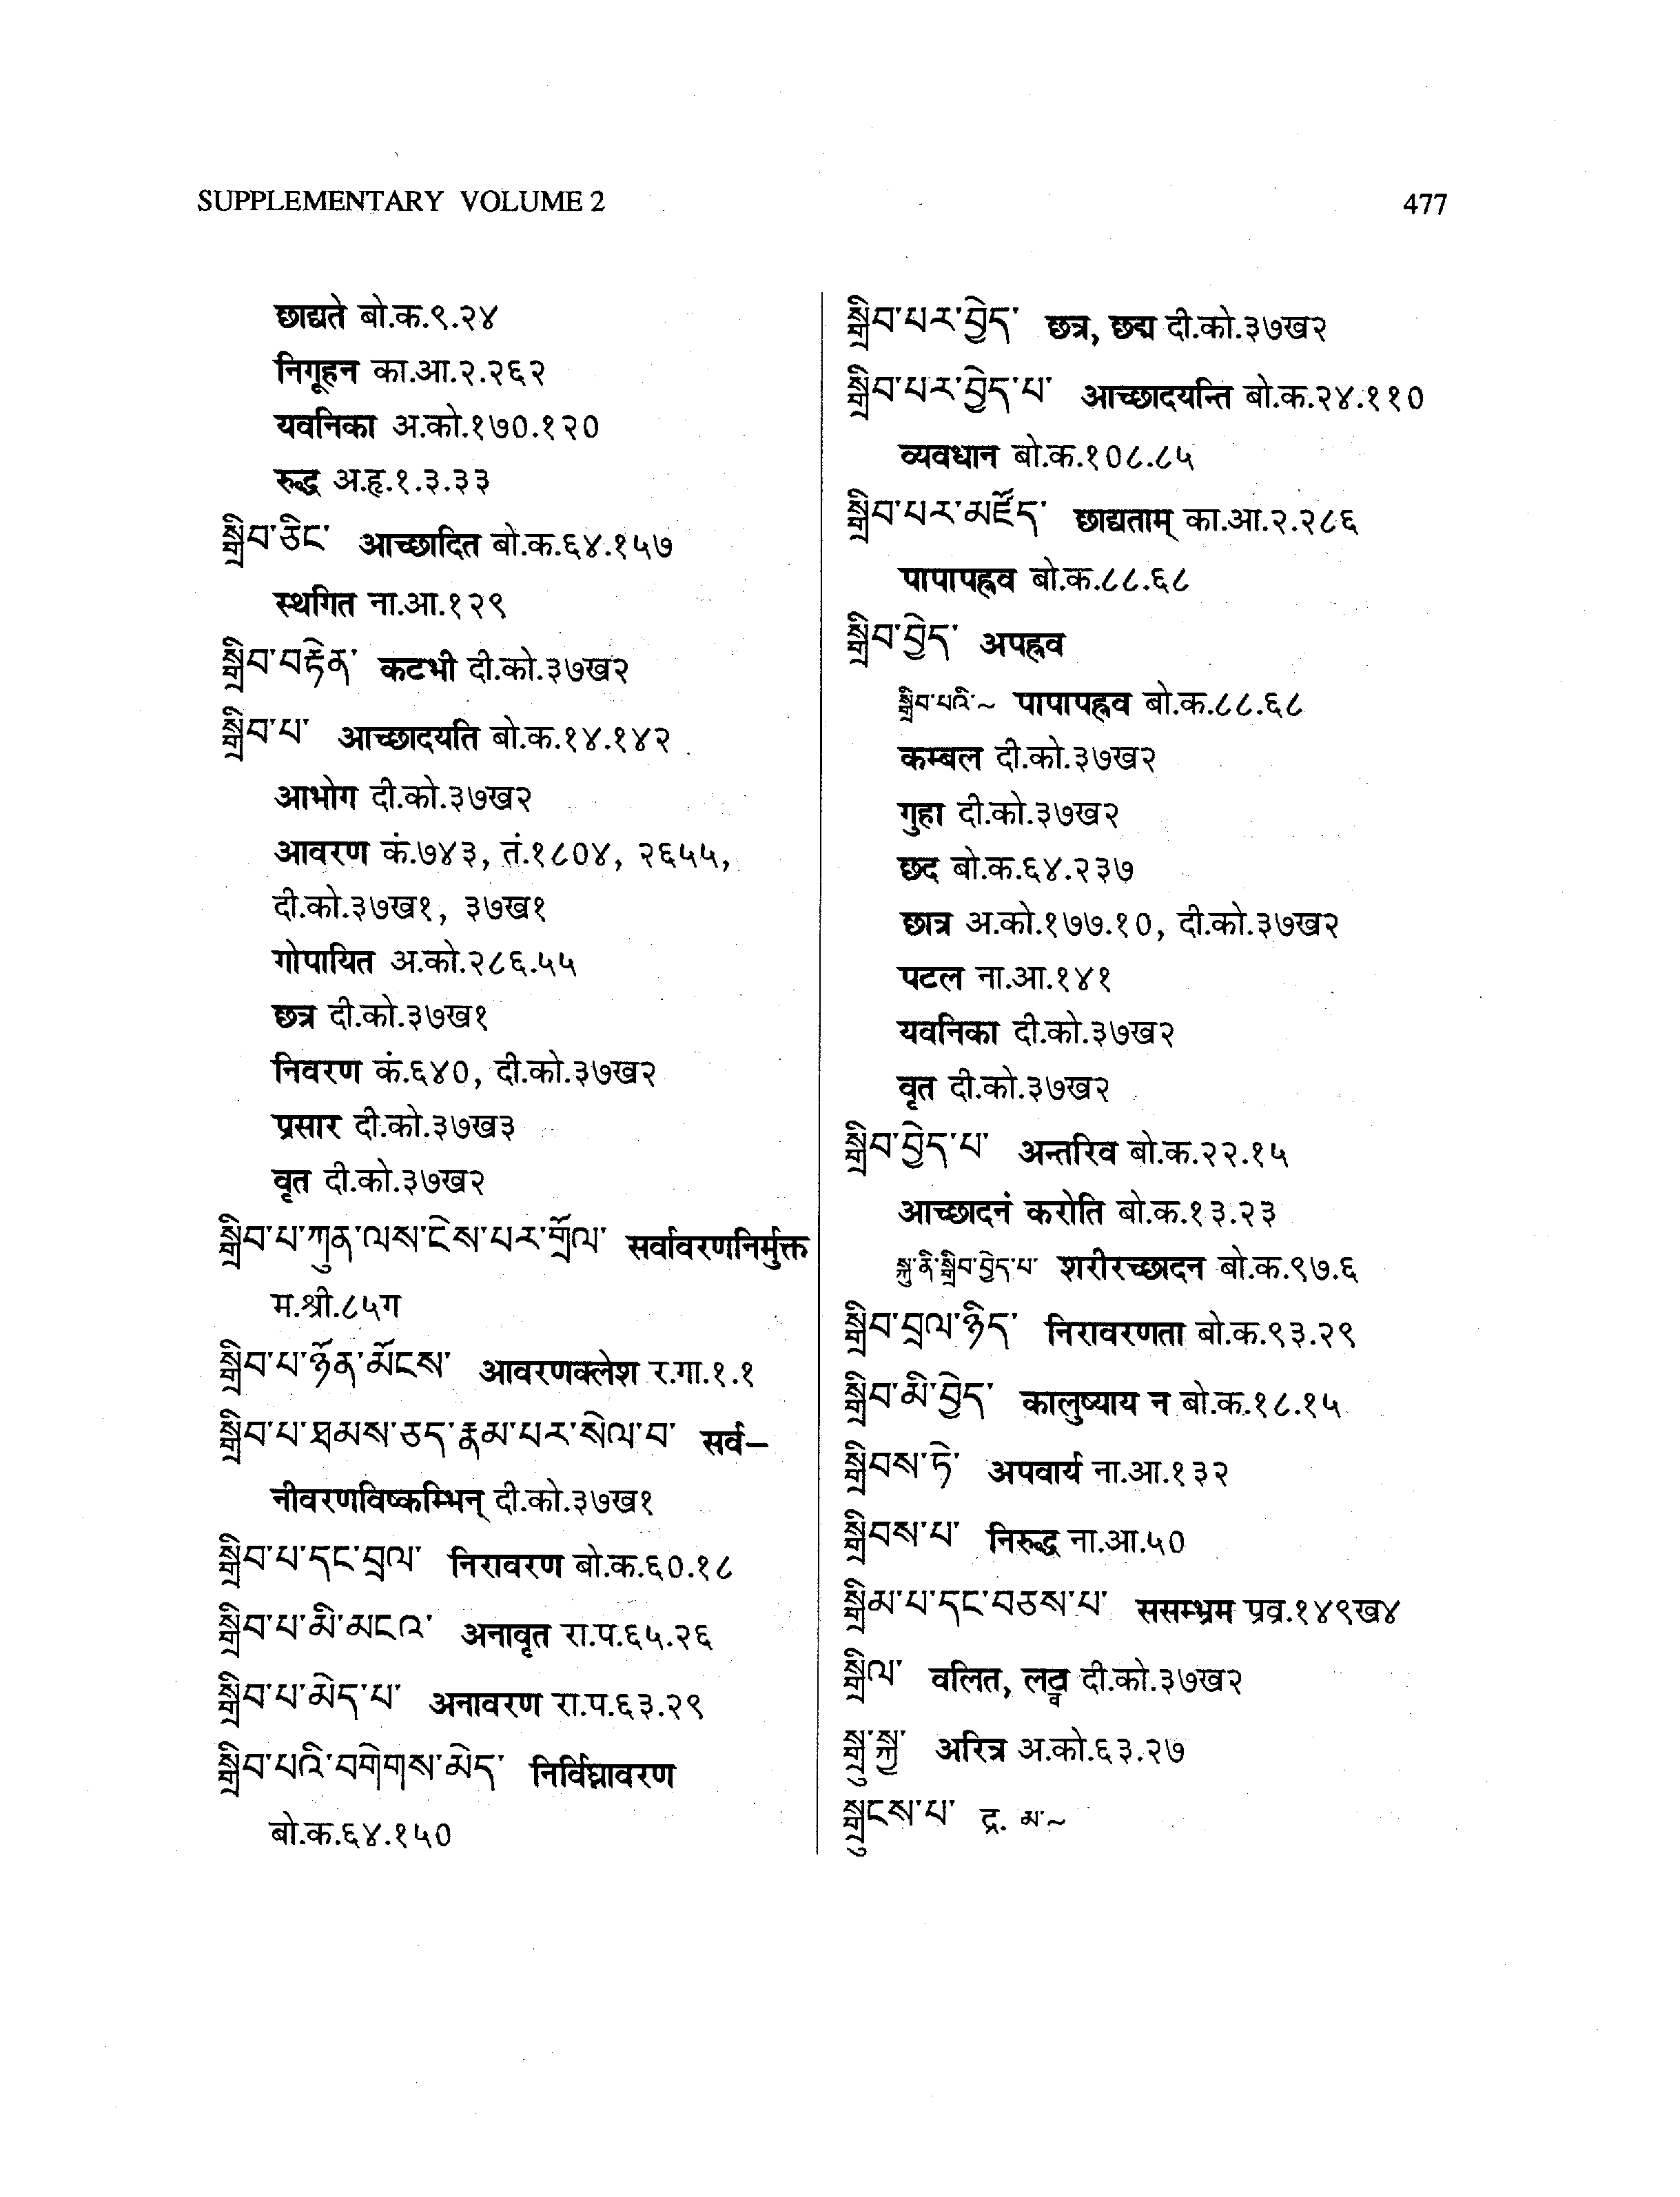 SUPPLEMENTARY VOLUME 2
477
छाद्यते बो.क.९.२४
निगूहन का.आ.२.२६२
यवनिका अ.को.१७०.१२०
रुद्ध अ.हृ.१.३.३३
སྒྲིབ་ཅིང་ आच्छादित बो.क.६४.१५७
स्थगित ना.आ.१२९
སྒྲིབ་བརྟེན་ कटभी दी.को.३७ख२
སྒྲིབ་པ་ आच्छादयति बो.क.१४.१४२
आभोग दी.को.३७ख२
आवरण कं.७४३, तं.१८०४, २६५५,
दी.को.३७ख१, ३७ख१
गोपायित अ.को.२८६.५५
छत्र दी.को.३७ख१
निवरण कं.६४०, दी.को.३७ख२
प्रसार दी.को.३७ख३
वृत दी.को.३७ख२
སྒྲིབ་པ་ཀུན་ལས་ངེས་པར་གྲོལ་ सर्वावरणनिर्मुक्त
म.श्री.८५ग
སྒྲིབ་པ་ཉོན་མོངས་ आवरणक्लेश र.गा.१.१
སྒྲིབ་པ་ཐམས་ཅད་རྣམ་པར་སེལ་བ་ सर्व–
नीवरणविष्कम्भिन् दी.को.३७ख१
སྒྲིབ་པ་དང་བྲལ་ निरावरण बो.क.६०.१८
སྒྲིབ་པ་མི་མངའ་ अनावृत रा.प.६५.२६
སྒྲིབ་པ་མེད་པ་ अनावरण रा.प.६३.२९
སྒྲིབ་པའི་བགེགས་མེད་ निर्विघ्नावरण
बो.क.६४.१५०
སྒྲིབ་པར་བྱེད་ छत्र, छद्म दी.को.३७ख२
སྒྲིབ་པར་བྱེད་པ་ आच्छादयन्ति बो.क.२४.११०
व्यवधान बो.क.१०८.८५
སྒྲིབ་པར་མཛོད་ छाद्यताम् का.आ.२.२८६
पापापह्नव बो.क.८८.६८
སྒྲིབ་བྱེད་ अपह्नव
སྒྲིབ་པའི་~ पापापह्नव बो.क.८८.६८
कम्बल दी.को.३७ख२
गुहा दी.को.३७ख२
छद बो.क.६४.२३७
छात्र अ.को.१७७.१०, दी.को.३७ख२
पटल ना.आ.१४१
यवनिका दी.को.३७ख२
वृत दी.को.३७ख२
སྒྲིབ་བྱེད་པ་ अन्तरिव बो.क.२२.१५
आच्छादनं करोति बो.क.१३.२३
སྐུ་ནི་སྒྲིབ་བྱེད་པ་ शरीरच्छादन बो.क.९७.६
སྒྲིབ་བྲལ་ཉིད་ निरावरणता बो.क.९३.२९
སྒྲིབ་མི་བྱེད་ कालुष्याय न बो.क.१८.१५
སྒྲིབས་ཏེ་ अपवार्य ना.आ.१३२
སྒྲིབས་པ་ निरुद्ध ना.आ.५०
སྒྲིམ་པ་དང་བཅས་པ་ ससम्भ्रम प्रव्र.१४९ख४
སྒྲིལ་ वलित, लट्व दी.को.३७ख२
སྒྲུ་སྐྱ་ अरित्र अ.को.६३.२७
སྒྲུངས་པ་ द्र. མ་~